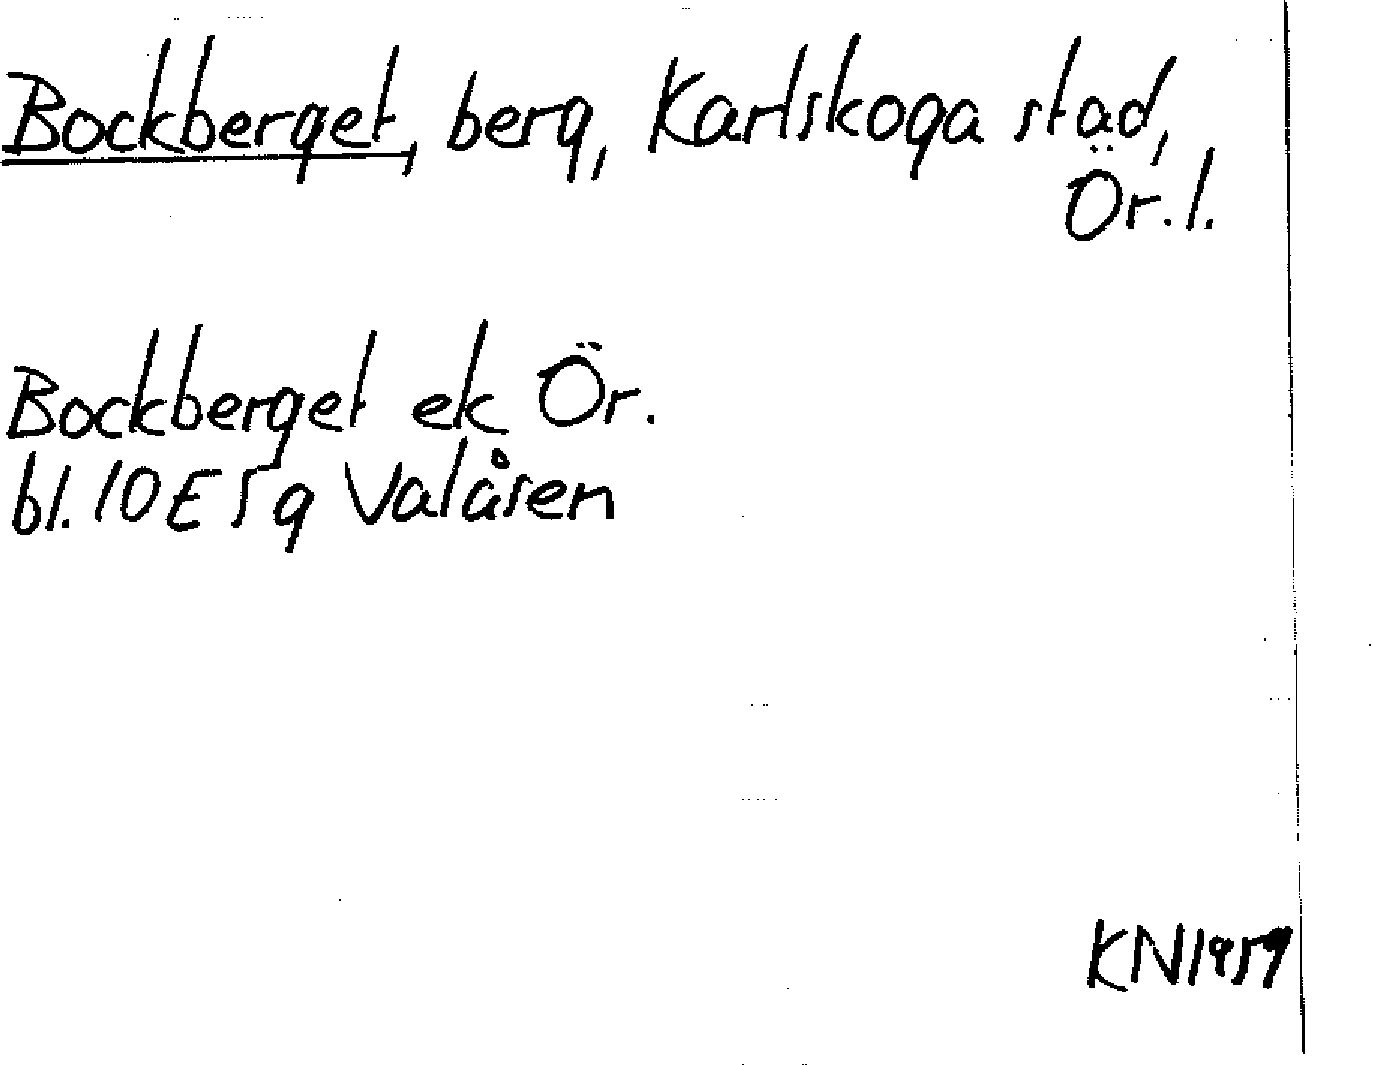 Bockberget, berg, Karlskoga stad,
Ör. l.
Bockberget ek Ör.
bl. 10E5g Valåsen
KN1959